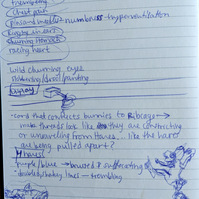 trembling
chest pain
pins and needles → numbness → hyperventilation
ringing in ears
churning stomach
racing heart
wild churning eyes
→ cord that connects bunnies to ribcage →
make threads look like they are constricting
or unraveling from torsos... like the hares
are being pulled apart?
Hares:
purple/blue → bruised & suffocating
doodled/shakey lines → trembling